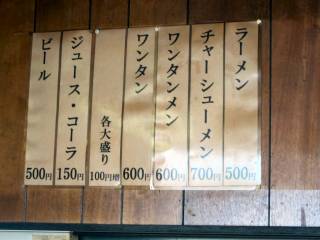 ラーメン 500円
チャーシューメン 700円
ワンタンメン 600円
ワンタン 600円
各大盛り 100円増
ジュース・コーラ 150円
ビール 500円